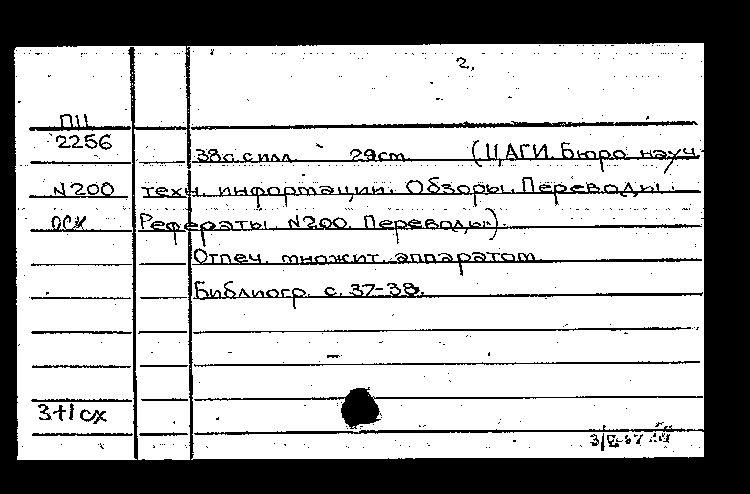 2.
П11
2256 38с. с илл. 29см. (ЦАГИ. Бюро науч.
N200 техн. информации. Обзоры. Переводы.
оск Рефераты. N200. Переводы).
Отпеч. множит. аппаратом.
Библиогр. с. 37-38.
3+1 сх